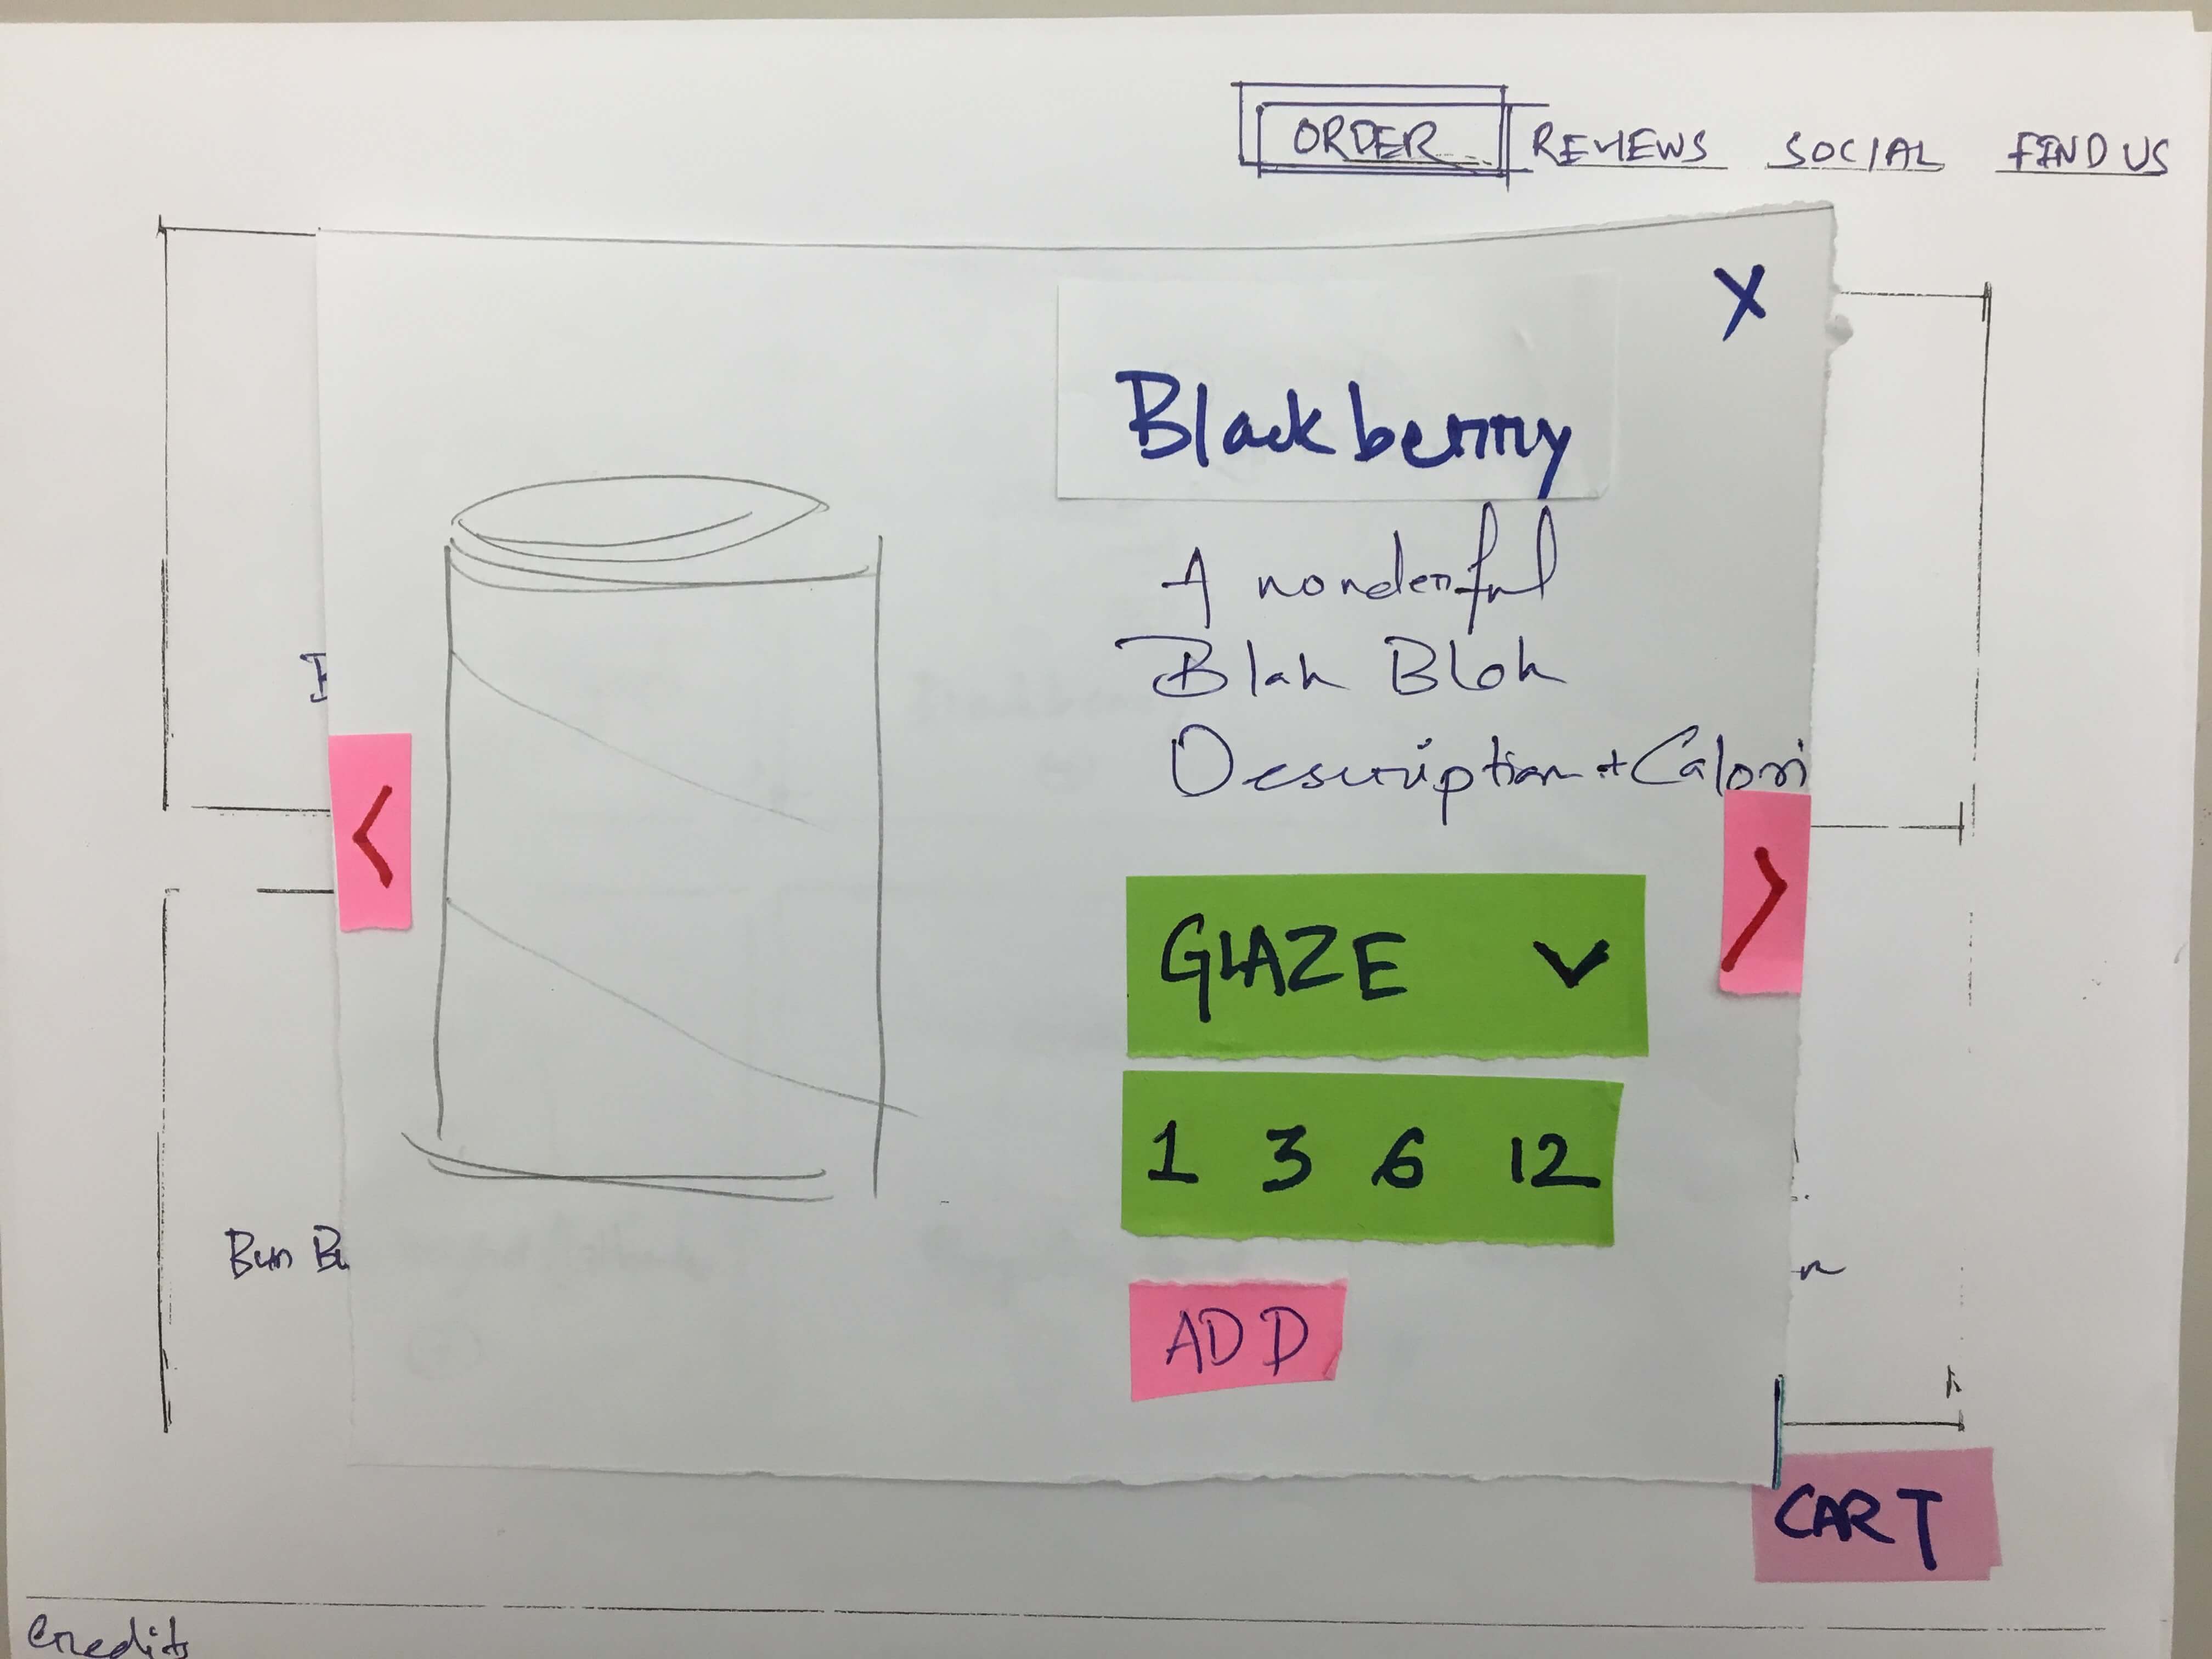 ORDER REVIEWS SOCIAL FIND US
X
Blackberry
A wonderful
Blah Blah
Description + Calori
<
>
GLAZE
1 3 6 12
Bun Bu
ADD
CART
Credits